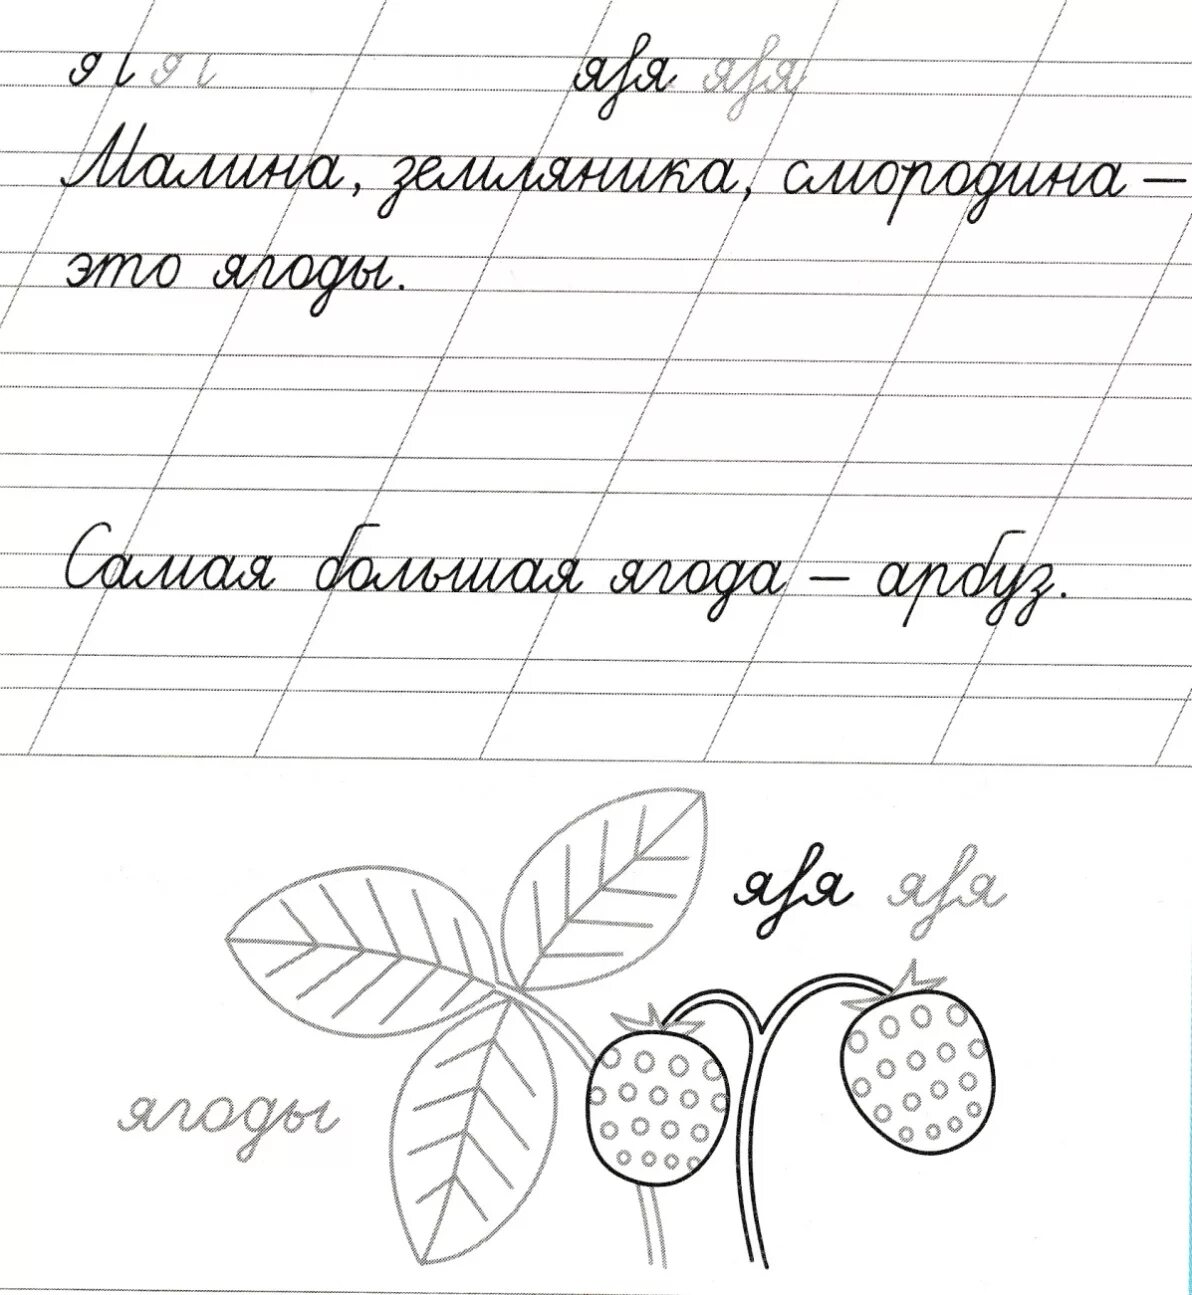 я я яfя яfя
Малина, земляника, смородина –
это ягоды.
Самая большая ягода – арбуз.
яfя яfя
ягоды